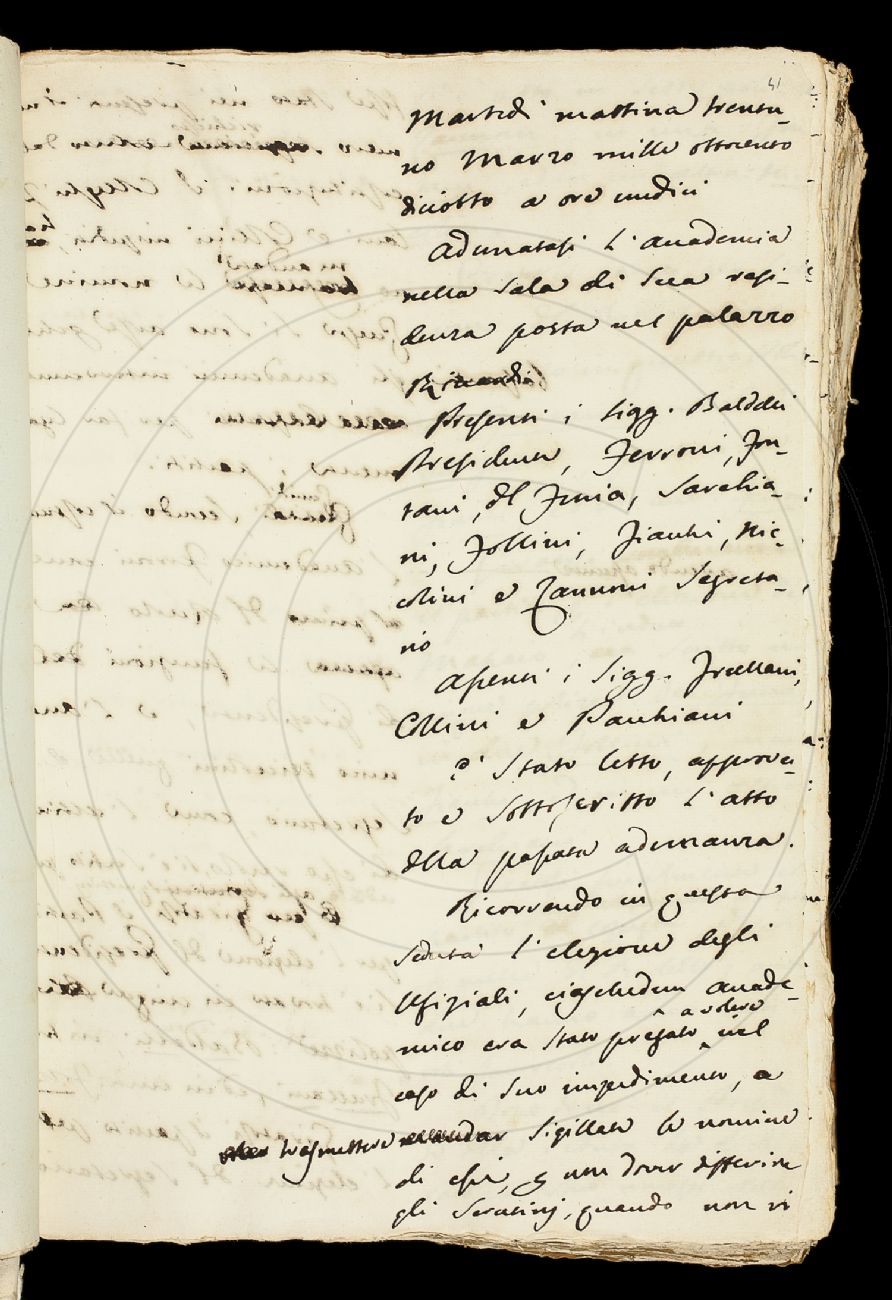 41
Martedì mattina trentu-
no Marzo mille ottocento
diciotto a ore undici
Adunatasi l'Accademia
nella Sala di Sua resi-
denza posta nel palazzo
Riccardi
Presenti i Sigg. Baldelli
Presidente, Ferroni, Fon-
tani, del Furia, Sarchia-
ni, Follini, Fiacchi, Nic-
colini e Zannoni Segreta-
rio
Assenti i Sigg. Frullani,
Collini e Pauchiani
È stato letto, approva-
to e sottoscritto l'atto
della passata adunanza.
Ricorrendo in questa
Seduta l'elezione degli
Ufiziali, ciaschedun Accade-
mico era stato pregato
a volere
nel
caso di suo impedimento, a
trasmettere mandar sigillate le nomine
di essi, p non dover differire
gli Scrutinj, quando non vi